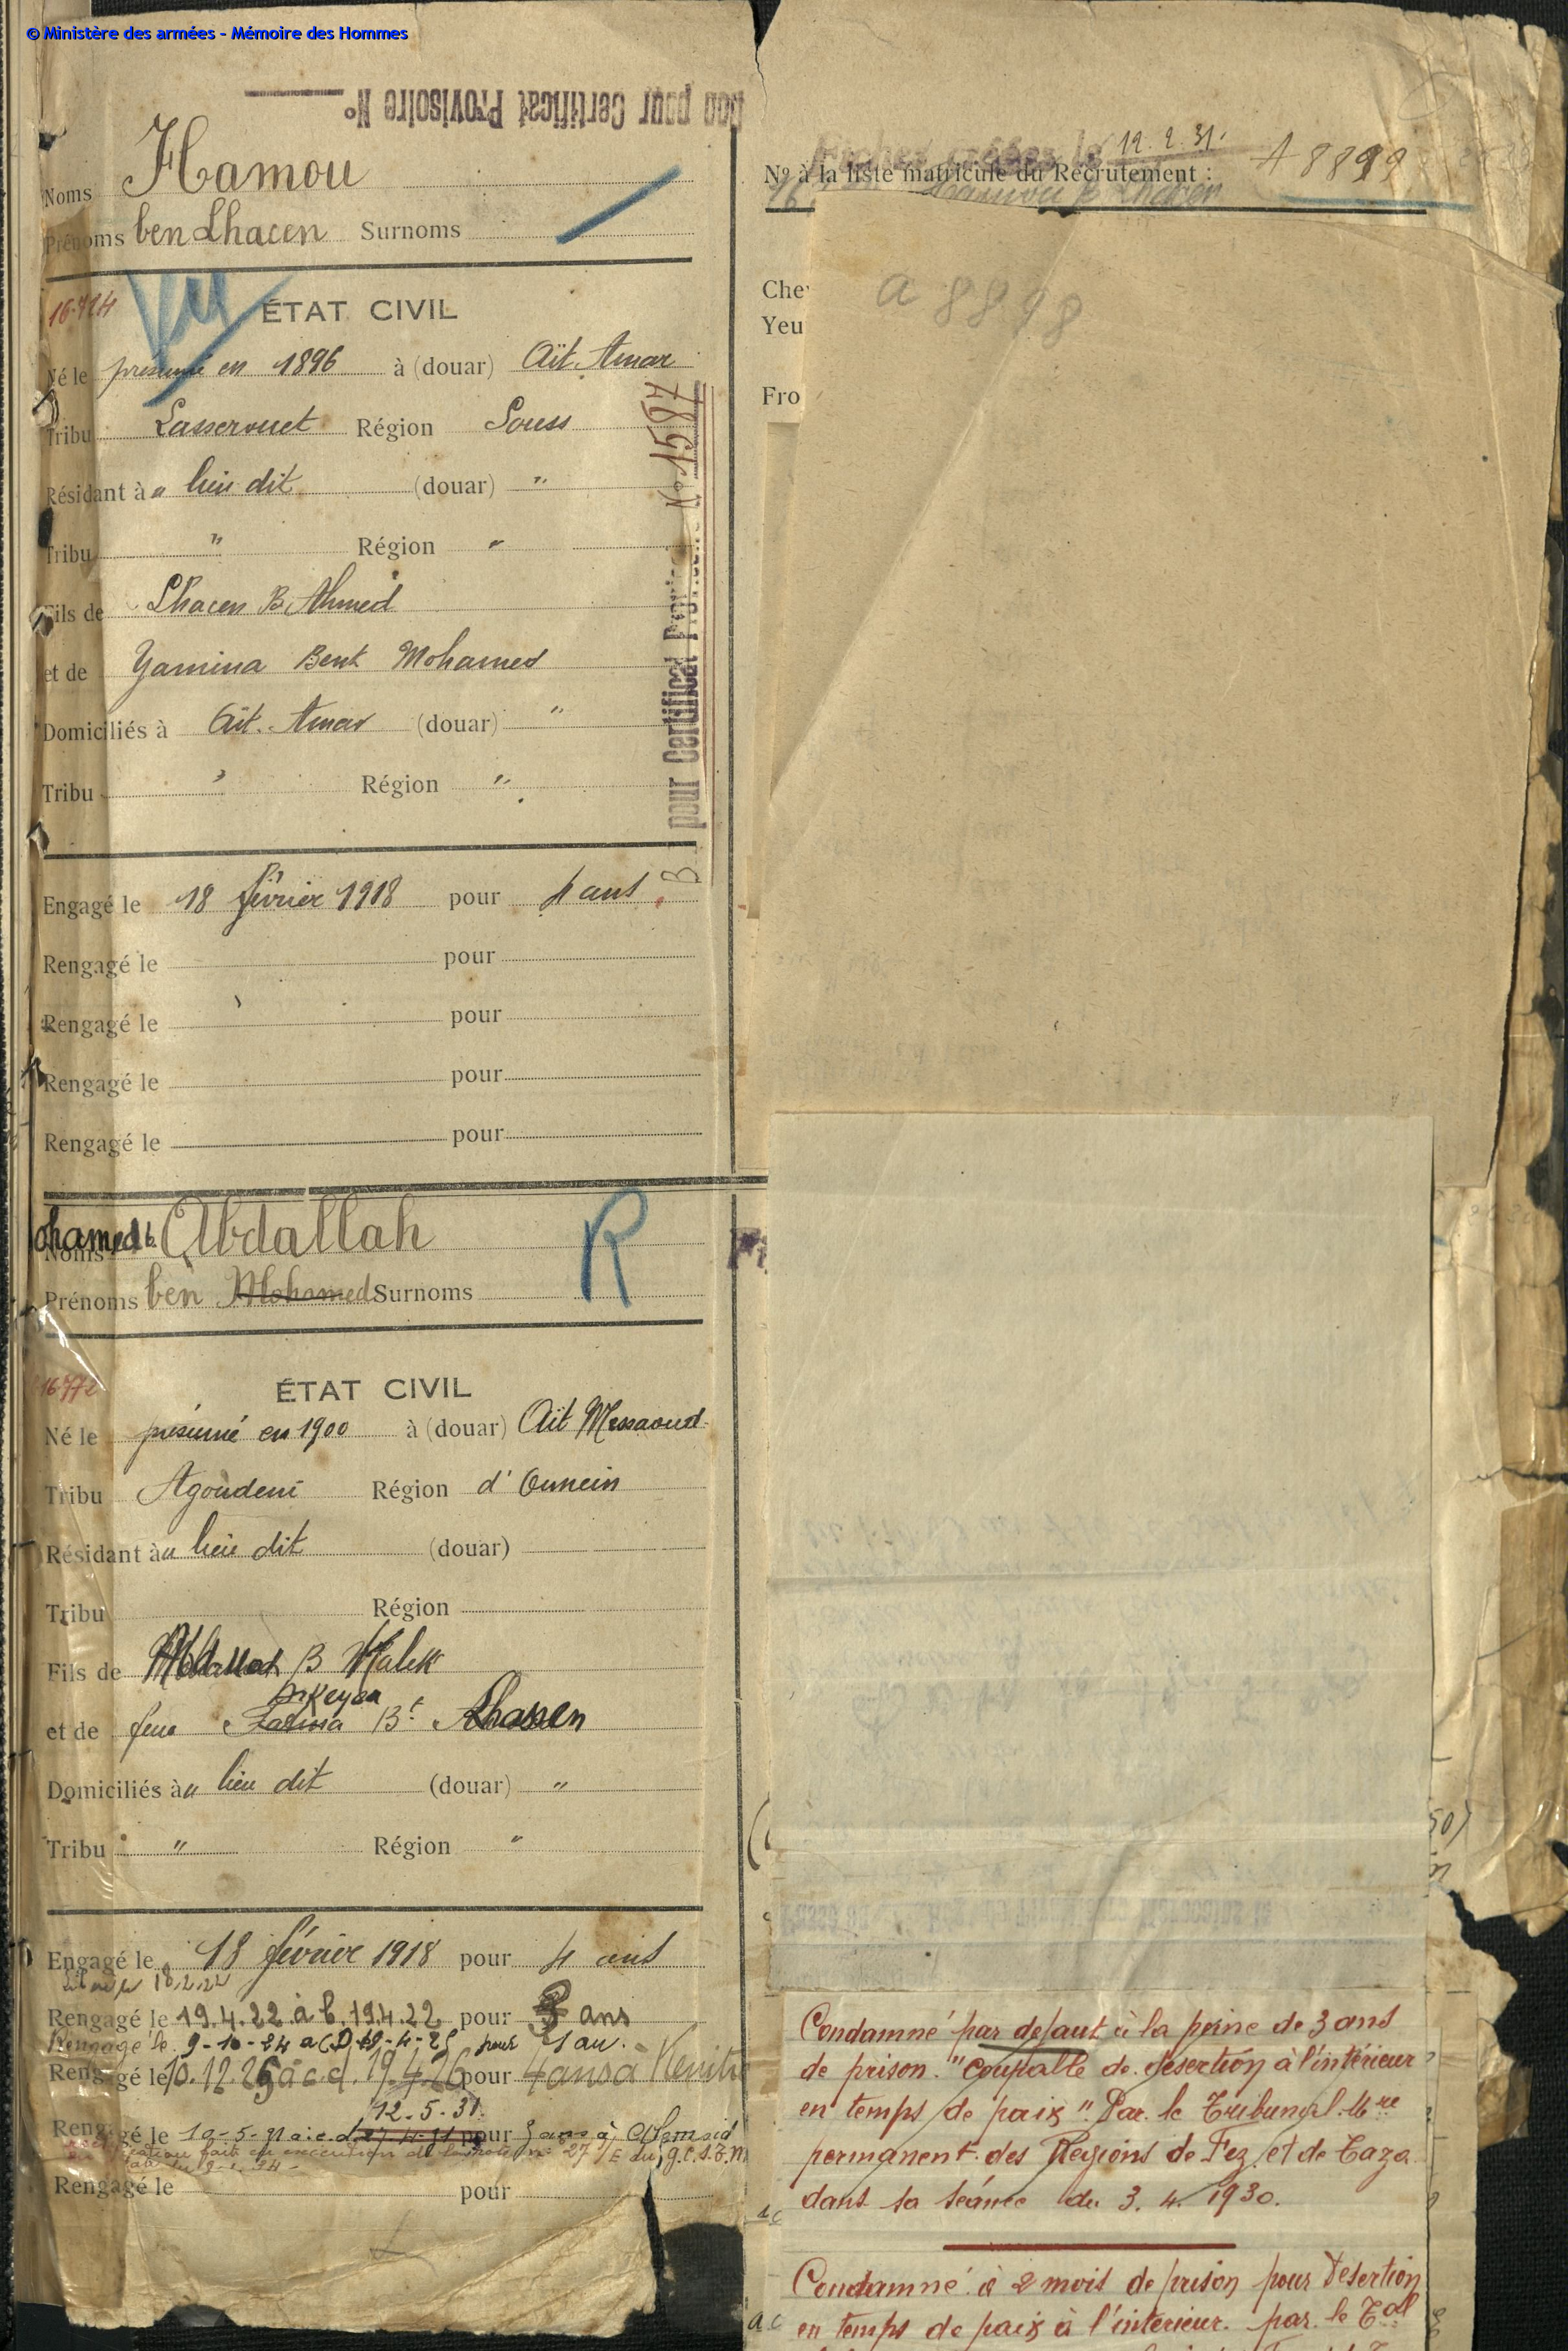 © Ministère des armées - Mémoire des Hommes
Bon pour Certificat Provisoire N°
Noms Hamou
Prénoms ben Lhacen Surnoms
16.724
Vu
ÉTAT CIVIL
Né le présumé en 1896 à (douar) Aït Amar
Tribu Lasserouet Région Souss
Résidant à u lieu dit (douar) "
Tribu " Région "
Fils de Lhacen B Ahmed
et de Yamina Bent Mohamed
Domiciliés à Aït. Amar (douar) "
Tribu " Région "
B pour Certificat Provisoire N° 1587
Engagé le 18 février 1918 pour 4 ans
Rengagé le pour
Rengagé le pour
Rengagé le pour
Rengagé le pour
Noms ohamed b. Abdallah
Prénoms ben Mohamed Surnoms
R
16772
ÉTAT CIVIL
Né le présumé en 1900 à (douar) Aït Messaoud
Tribu Agoudeni Région d' Ounein
Résidant à u lieu dit (douar)
Tribu Région
Fils de B Malek
et de feue Fatima Bt Lhassen
Domiciliés à u lieu dit (douar) "
Tribu " Région "
Engagé le 18 février 1918 pour 4 ans
18.2.22
Rengagé le 19.4.22 à c. 19.4.22 pour 3 ans
Rengagé le 9-10-24 a CD 19-4-25 pour 1 an.
Rengagé le 10.12.25 à c.d. 19.4.26 pour 4 ans à Kenitra
12-5-31.
Rengagé le 10-5-31 a.c.d. pour 3 ans à
fait en exécution de 27/E du g.c.s.t.m
Rengagé le pour
12.2.31.
N° à la liste matricule du Récrutement : A 8899
Hamou B Lhacen
Che
Yeu
Fro
a 8898
50)
Condamné par defaut à la peine de 3 ans
de prison. "coupable de desertion à l'intérieur
en temps de paix". Par le Tribunal Mre
permanent des Regions de Fez et de Taza
dans sa séance du 3. 4. 1930.
Condamné à 2 mois de prison pour Desertion
en temps de paix à l'interieur. par le Tall